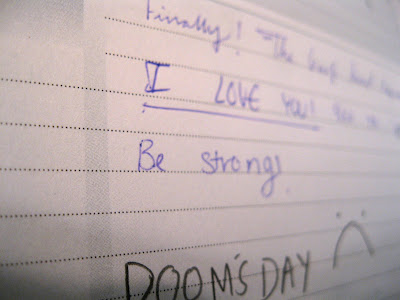 Finally! The
I LOVE YOU!
Be strong!
DOOM'S DAY